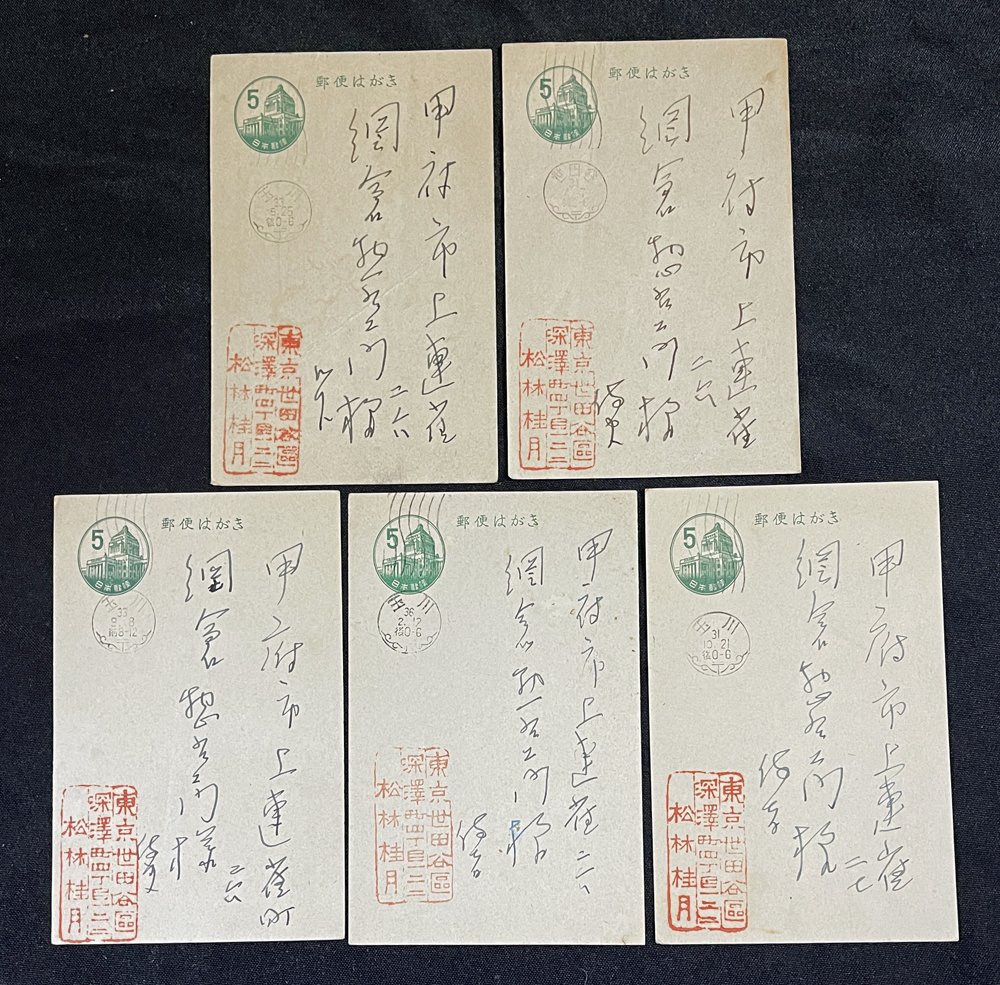 郵便はがき
5
日本郵便
玉川
後0-6
甲府市上連雀
二六
網倉惣右衛門様
東京世田谷區
深澤町四丁目二二
松林桂月
郵便はがき
5
日本郵便
世田谷
甲府市上連雀
二六
網倉惣右衛門様
東京世田谷區
深澤町四丁目二二
松林桂月
郵便はがき
5
日本郵便
玉川
33
前8-12
甲府市上連雀町
二六
網倉惣右衛門様
東京世田谷區
深澤町四丁目二二
松林桂月
郵便はがき
5
日本郵便
玉川
36
2.12
後0-6
甲府市上連雀二六
網倉惣右衛門様
東京世田谷區
深澤町四丁目二二
松林桂月
郵便はがき
5
日本郵便
玉川
31
10.21
後0-6
甲府市上連雀
二七
網倉惣右衛門様
東京世田谷區
深澤町四丁目二二
松林桂月